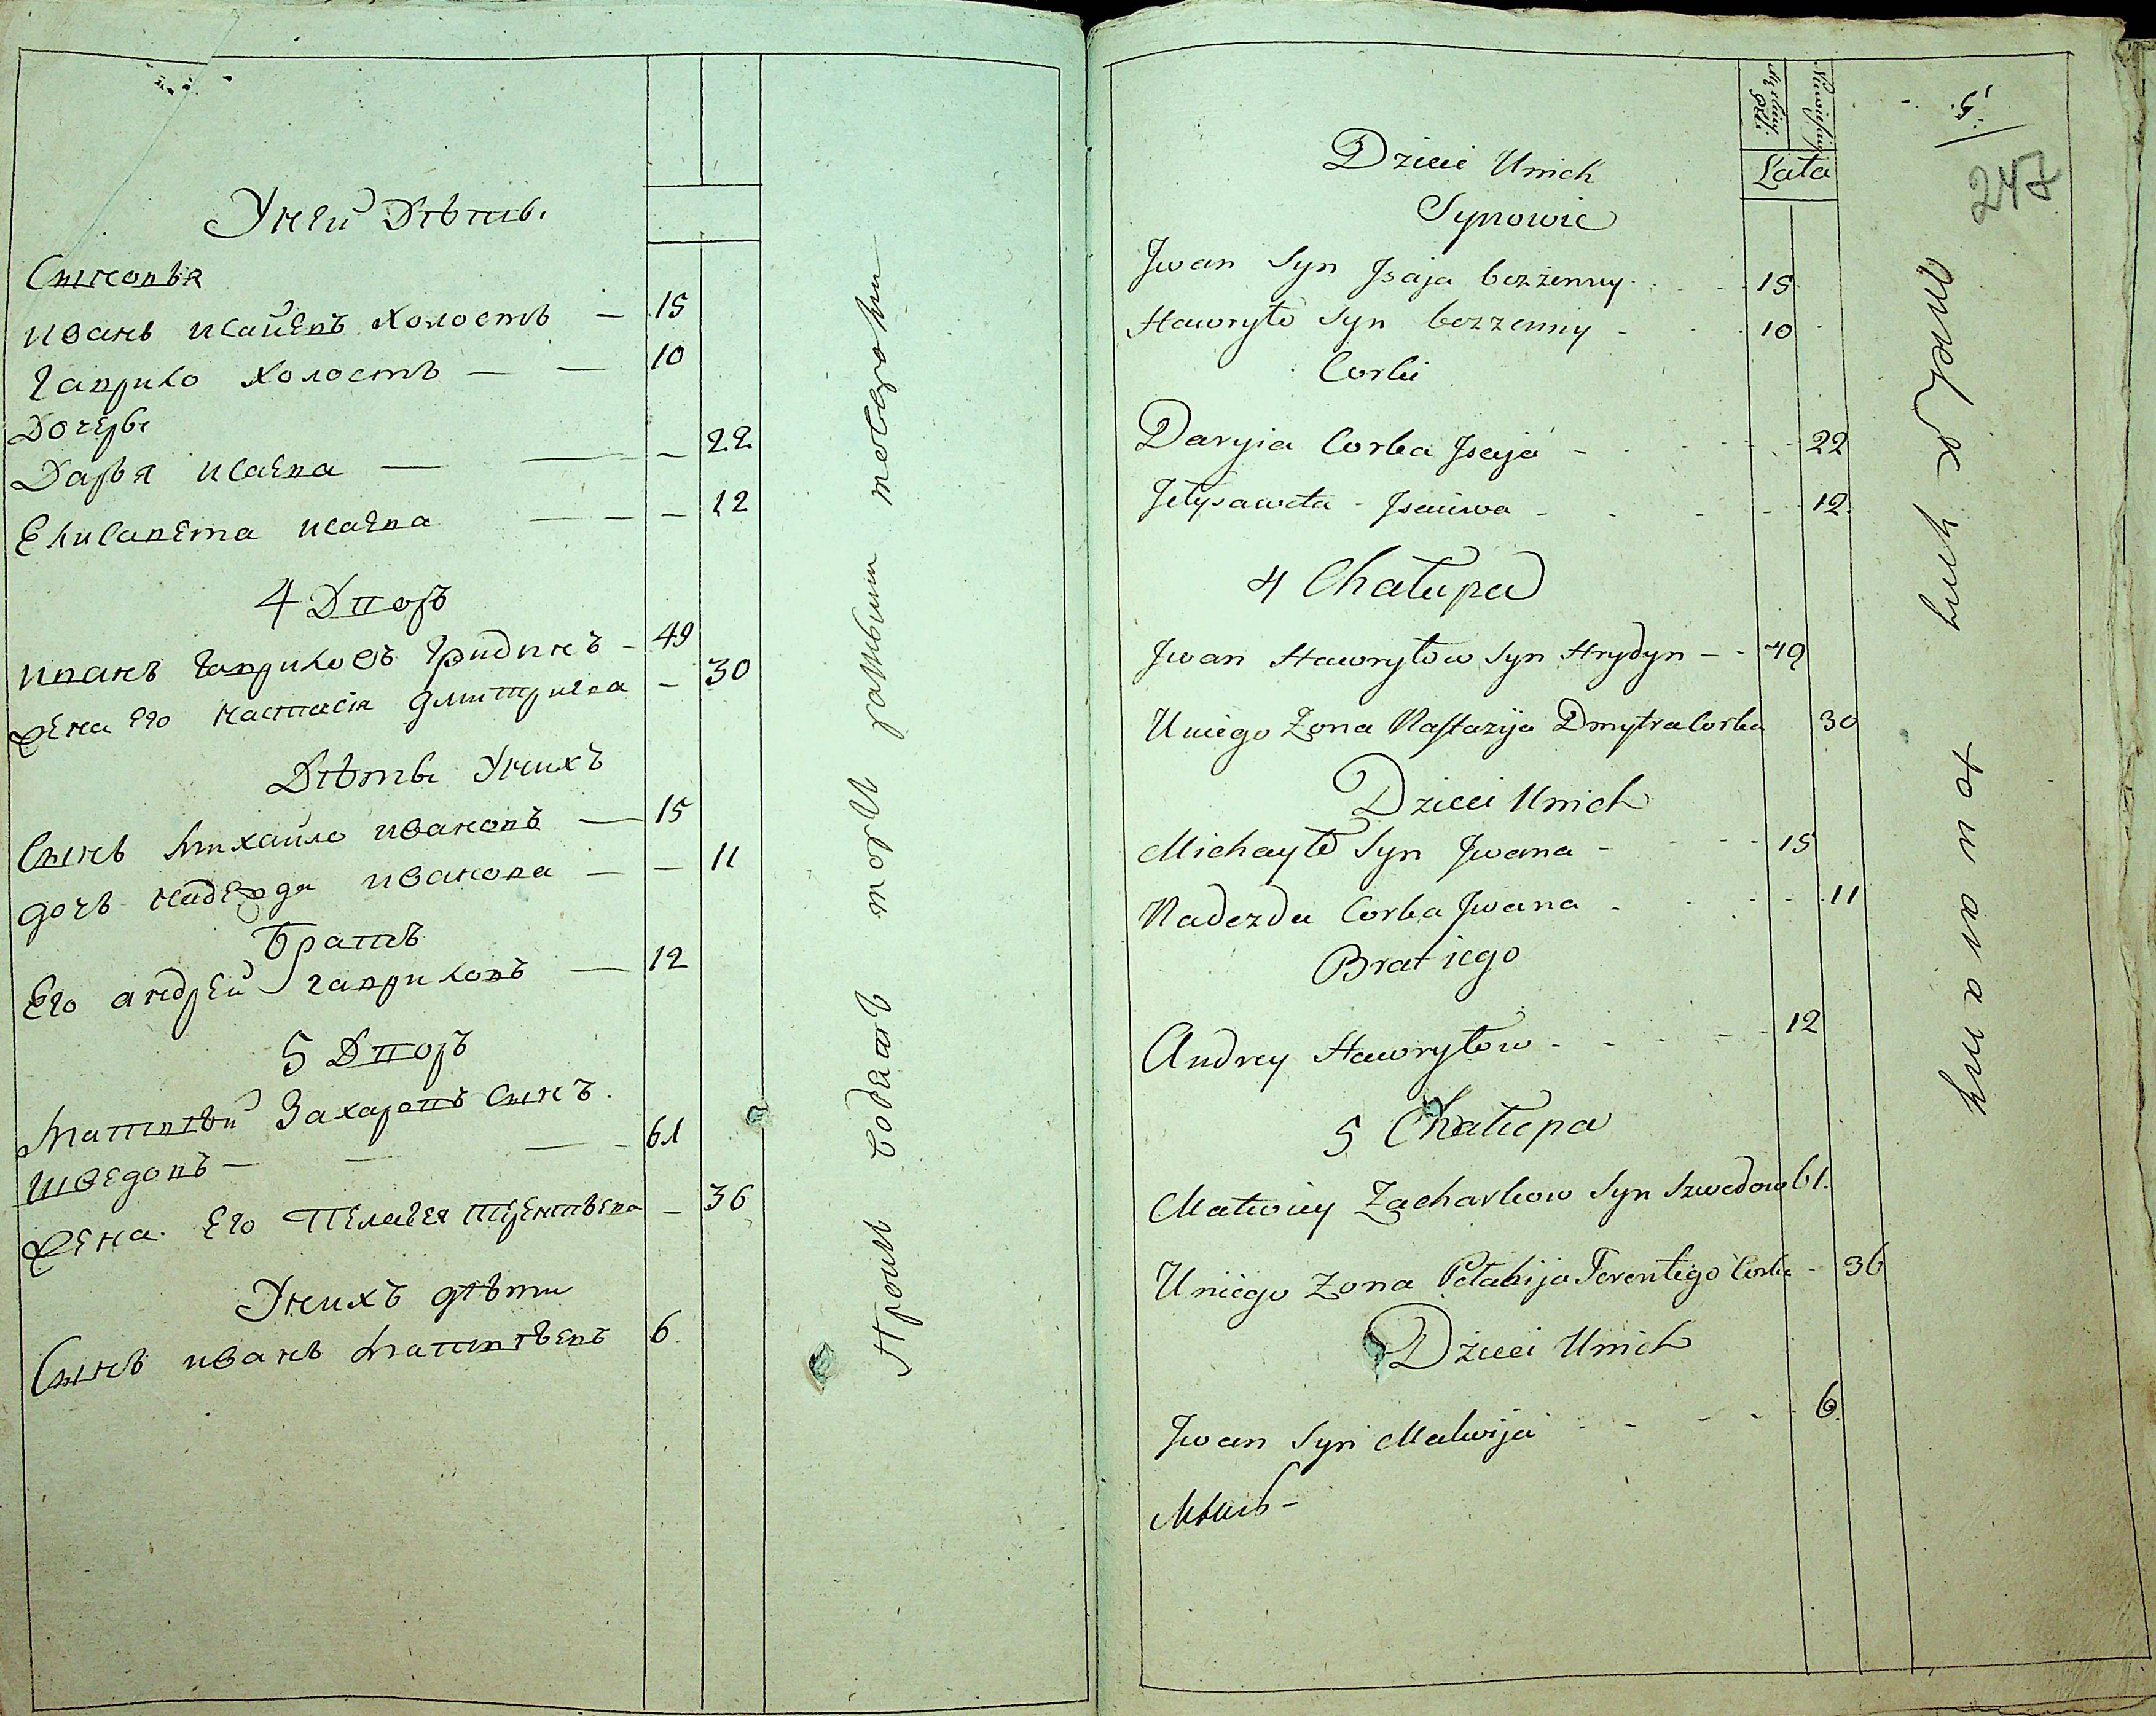 Унеи Дѣти
Сыновья
Иванъ Исаивъ холостъ — 15
Гаврило холостъ — — 10
Дочеры
Дарья Исаева — — — 22
Елисавета Исаева — — — 12
4 Дворъ
Иванъ Гавриловъ Гридинъ — 49
жена Его Настасія Дмитриева — 30
Дѣты Унихъ
Сынъ Михайло Ивановъ — 15
дочь Надежда Иванова — — 11
Братъ
Его андрей гавриловъ — 12
5 Дворъ
Матвѣй Захаровъ Сынъ
Шведовъ — — — 61
жена Его Пелагея Терентьева — 36
Унихъ дѣти
Сынъ иванъ Матвѣевъ 6
Lata
5
247
Dzieci Unich
Synowie
Jwan Syn Jsaja bezżenny 15
Hawryło Syn bezzenny 10
Corki
Daryia Corka Jsaja 22
Jełysaweta Jsaiwa 12
4 Chałupa
Jwan Hawryłow Syn Hrydyn — 49
Uniego Zona Nastazija Dmytra Corka 30
Dzieci Unich
Michayło Syn Jwana 15
Nadezda Corka Jwana 11
Brat iego
Andrey Hawryłow 12
5 Chałupa
Matwiey Zacharkow Syn Szwedow 61
Uniego Zona Pełahija Terentego Corka 36
Dzieci Unich
Jwan Syn Matwija 6